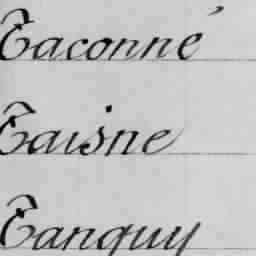 Taconné
Taisne
Tanquy